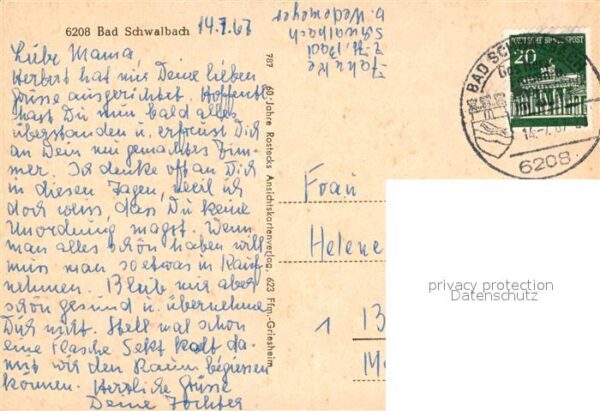 6208 Bad Schwalbach 14.7.67
Liebe Mama,
Herbert hat mir Deine lieben
Grüsse ausgerichtet. Hoffentl.
hast Du nun bald alles
überstanden u. erfreust Dich
an Dein neugemaltes Zim-
mer. Ich denke oft an Dich
in diesen Tagen, weil ich
doch weiss, dass Du keine
Unordnung magst. Wenn
man alles schön haben will
muss man so etwas in Kauf
nehmen. Bleib mir aber
schön gesund u. übernehme
Dich nicht. Stell mal schon
eine Flasche Sekt kalt da-
mit wir den Raum begiessen
können. Herzliche Grüsse
Deine Tochter
787 60 Jahre Rostocks Ansichtskartenverlag, 623 Ffm.-Griesheim
Jahnke
z. Zt. Bad
Schwalbach
b. Wedemeyer
DEUTSCHE BUNDESPOST
20
BAD SCHWALBACH
14.-7.67
6208
Frau
Helene
1 B
privacy protection
Datenschutz